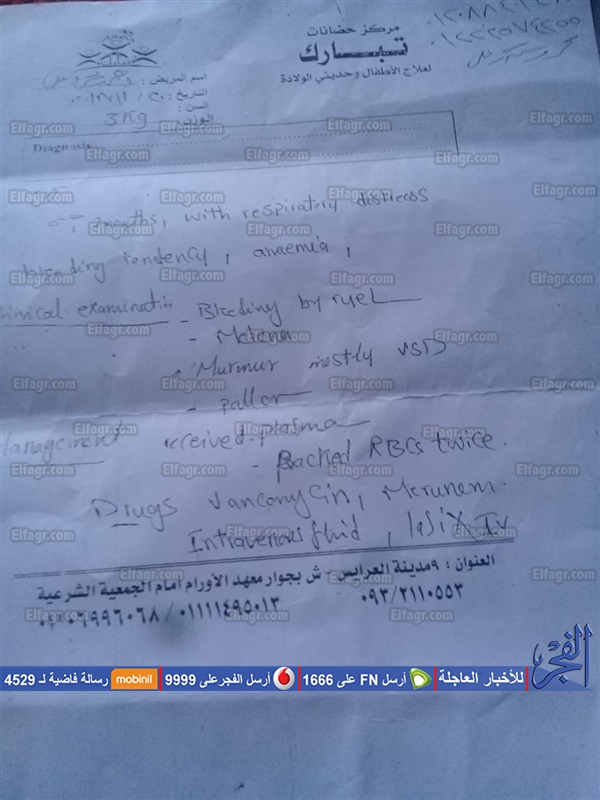 مركز حضانات
تبارك
لعلاج الأطفال وحديثي الولادة
اسم المريض :
التاريخ :
السن :
الوزن : 3 Kg
Diagnosis
months, with respiratory distress
bleeding tendency, anaemia,
clinical examination - Bleeding by ryel
- Melena
- Murmur mostly VSD
- pallor
Management received : plasma
- Packed RBCs twice.
Drugs Vancomycin, Meronem
Intravenous fluid, lasix Iv
العنوان : ٩مدينة العرايس - ش بجوار معهد الأورام امام الجمعية الشرعية
٠٩٣/٢١١٠٥٥٣
٠١١١١٤٩٥٠١٣
الفجر
للأخبار العاجلة أرسل FN على 1666 أرسل الفجر على 9999 mobinil رسالة فاضية لـ 4529
Elfagr.com